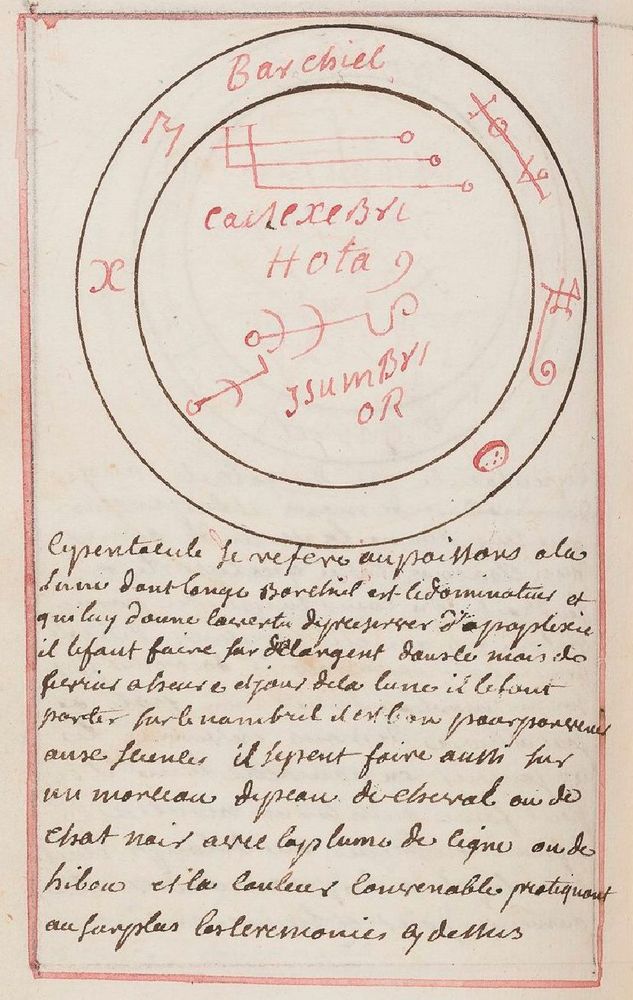 Barchiel
X
CaileXeBri
Hota
JsumBri
OR
Cepentacule se refere aupoissons ala
lune dont lange Barchiel est ledominateur et
quiluy donne lavertu depreserver d'apoplexie
il lefaut faire sur delargent dansle mois de
fevrier alheure etjour dela lune il lefaut
porter surlenombril il est bon pourparvenir
auxe sciences il sepeut faire aussi sur
un morceau depeau de cheval ou de
chat noir avec laplume de cigne ou de
hibou et la couleur convenable pratiquant
ausurplus lesceremonies cy dessus